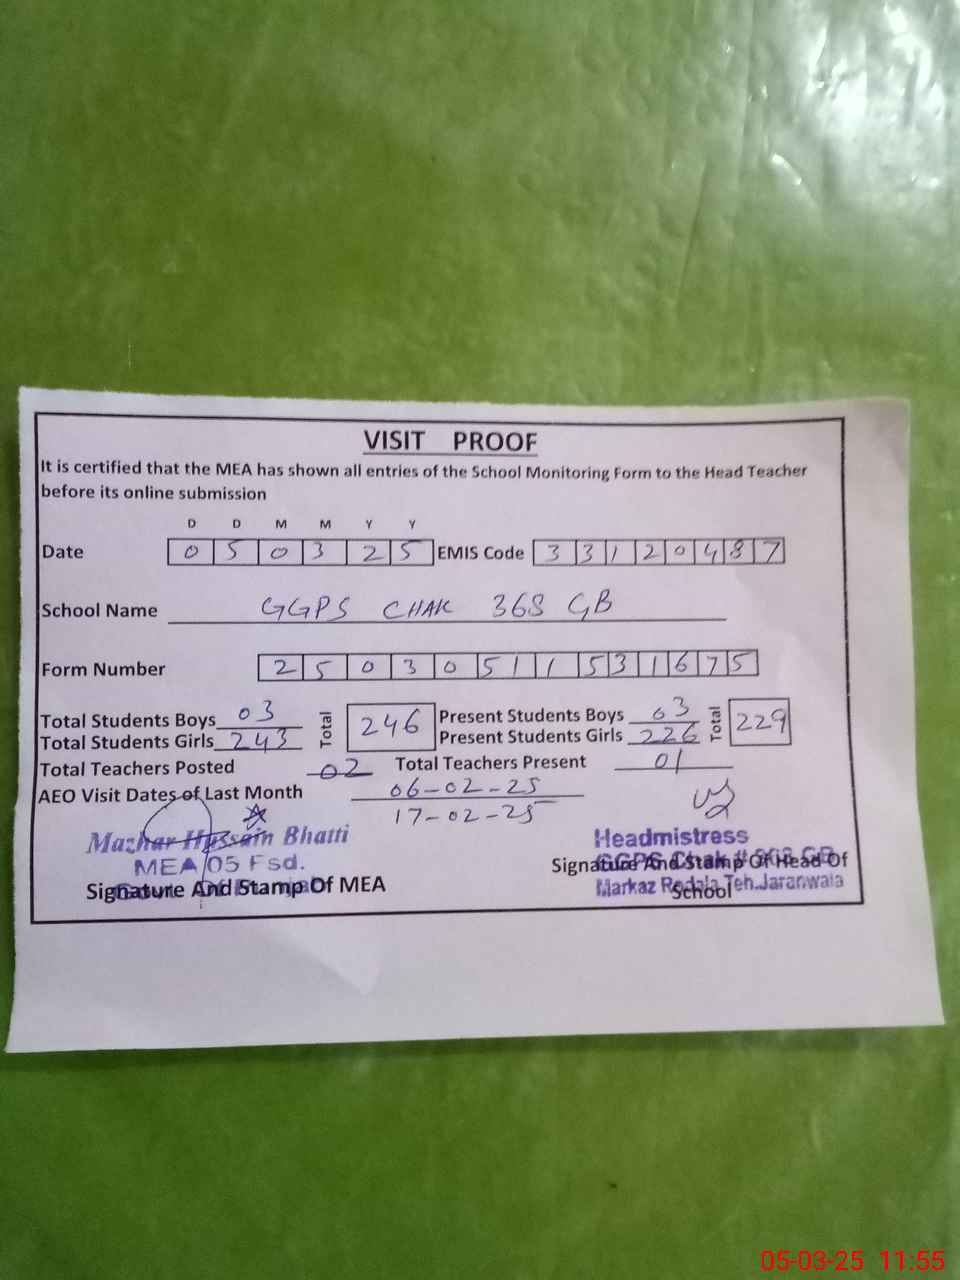 VISIT PROOF
It is certified that the MEA has shown all entries of the School Monitoring Form to the Head Teacher
before its online submission
D D M M Y Y
Date 0 5 0 3 2 5 EMIS Code 3 3 1 2 0 4 8 7
School Name GGPS CHAK 368 GB
Form Number 2 5 0 3 0 5 1 1 5 3 1 6 7 5
Total Students Boys 03 Total 246 Present Students Boys 03 Total 229
Total Students Girls 243 Present Students Girls 226
Total Teachers Posted 02 Total Teachers Present 01
AEO Visit Dates of Last Month 06-02-25
17-02-25
Mazhar Hussain Bhatti
MEA 05 Fsd.
Signature And Stamp Of MEA
Headmistress
GGPS Chak # GB
Signature And Stamp Of Head Of
Markaz Teh.Jaranwala
School
05-03-25 11:55